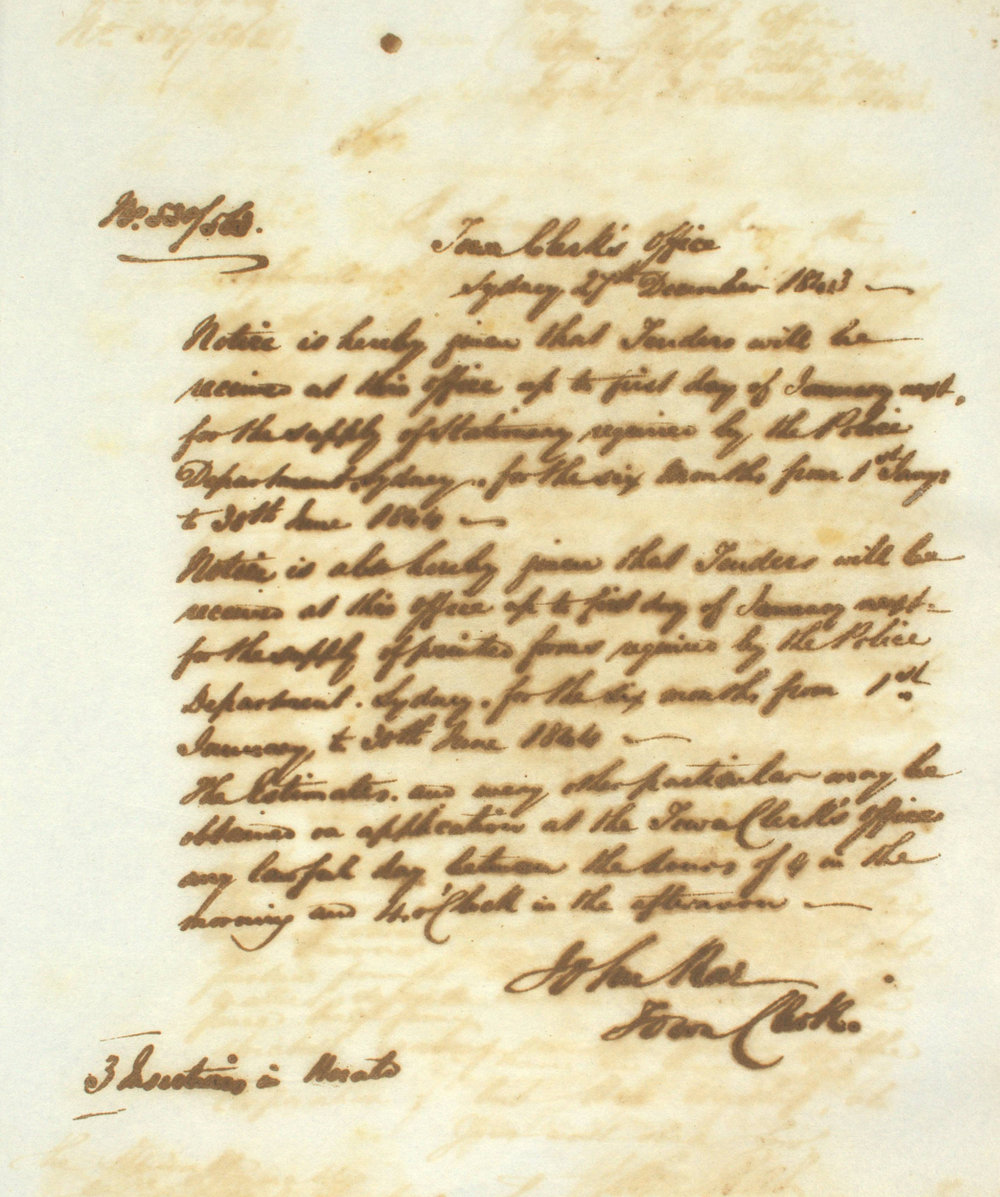 No. 530/563.
Town Clerk's Office
Sydney 27th December 1843
Notice is hereby given that Tenders will be
received at this office up to first day of January next,
for the supply of Stationery required by the Police
Department, Sydney, for the six months from 1st Jany.
to 30th June 1844
Notice is also hereby given that Tenders will be
received at this office up to first day of January next
for the supply of printed forms required by the Police
Department. Sydney, for the six months from 1st
January, to 30th June 1844
The Estimates. and every other particular may be
obtained on application at the Town Clerk's Office
any lawful day between the hours of 9 in the
morning and 4 o'Clock in the afternoon
John Rae
Town Clerk.
3 Insertions in Herald